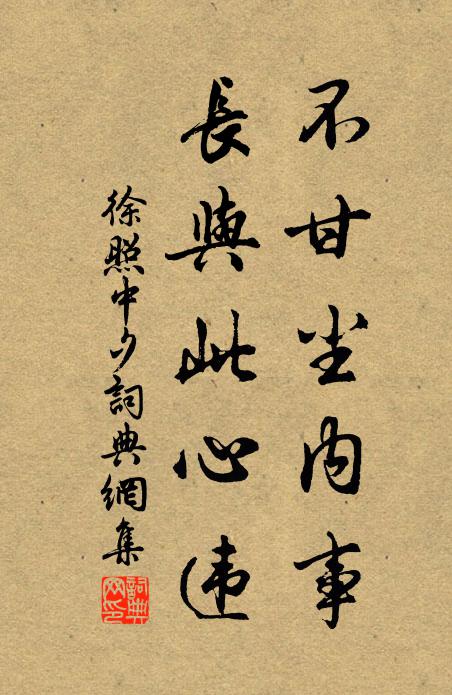 不甘尘内事
長與此心违
徐照中夕詞典網集
詞典网印